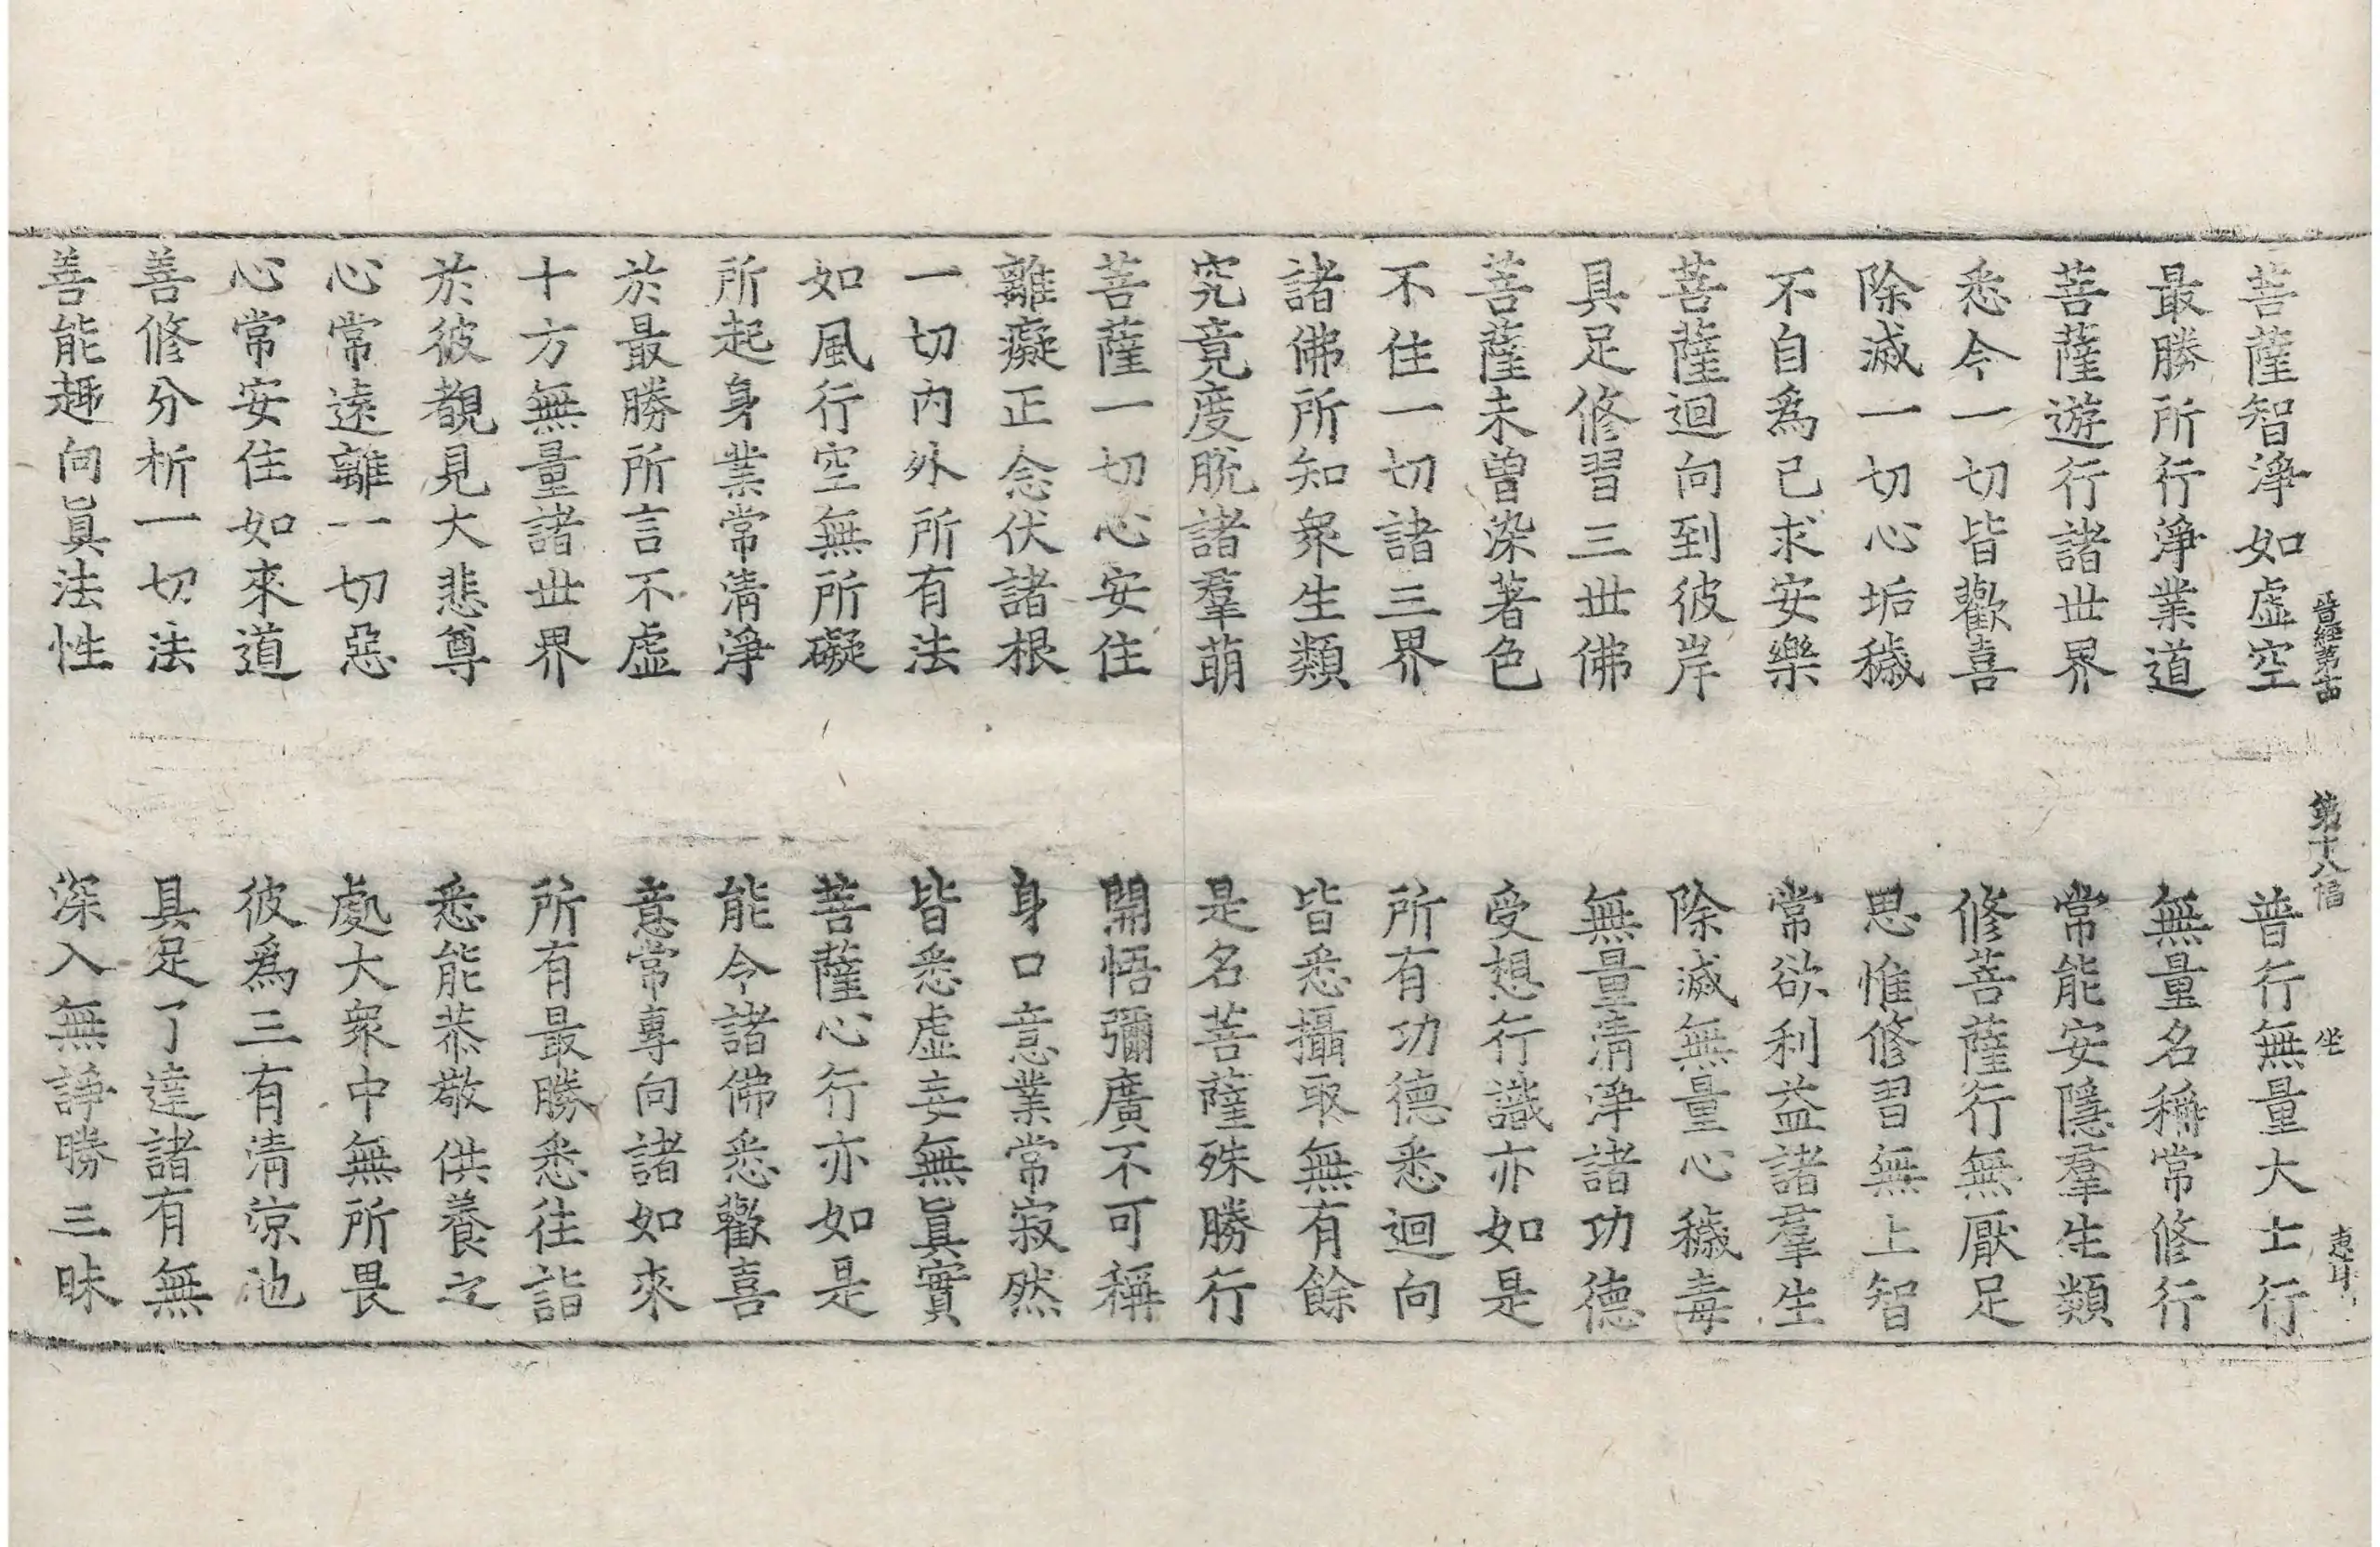 晉經第十四 第十八幅 坐
菩薩智淨如虛空 普行無量大士行
最勝所行淨業道 無量名稱常修行
菩薩遊行諸世界 常能安隱羣生類
悉令一切皆歡喜 修菩薩行無厭足
除滅一切心垢穢 思惟修習無上智
不自爲己求安樂 常欲利益諸羣生
菩薩迴向到彼岸 除滅無量心穢毒
具足修習三世佛 無量清淨諸功德
菩薩未曾染著色 受想行識亦如是
不住一切諸三界 所有功德悉迴向
諸佛所知衆生類 皆悉攝取無有餘
究竟度脫諸羣萌 是名菩薩殊勝行
菩薩一切心安住 開悟彌廣不可稱
離癡正念伏諸根 身口意業常寂然
一切內外所有法 皆悉虛妄無眞實
如風行空無所礙 菩薩心行亦如是
所起身業常清淨 能令諸佛悉歡喜
於最勝所言不虛 意常專向諸如來
十方無量諸世界 所有最勝悉往詣
於彼覩見大悲尊 悉能恭敬供養之
心常遠離一切惡 處大衆中無所畏
心常安住如來道 彼爲三有清涼池
善修分析一切法 具足了達諸有無
善能趣向眞法性 深入無諍勝三昧